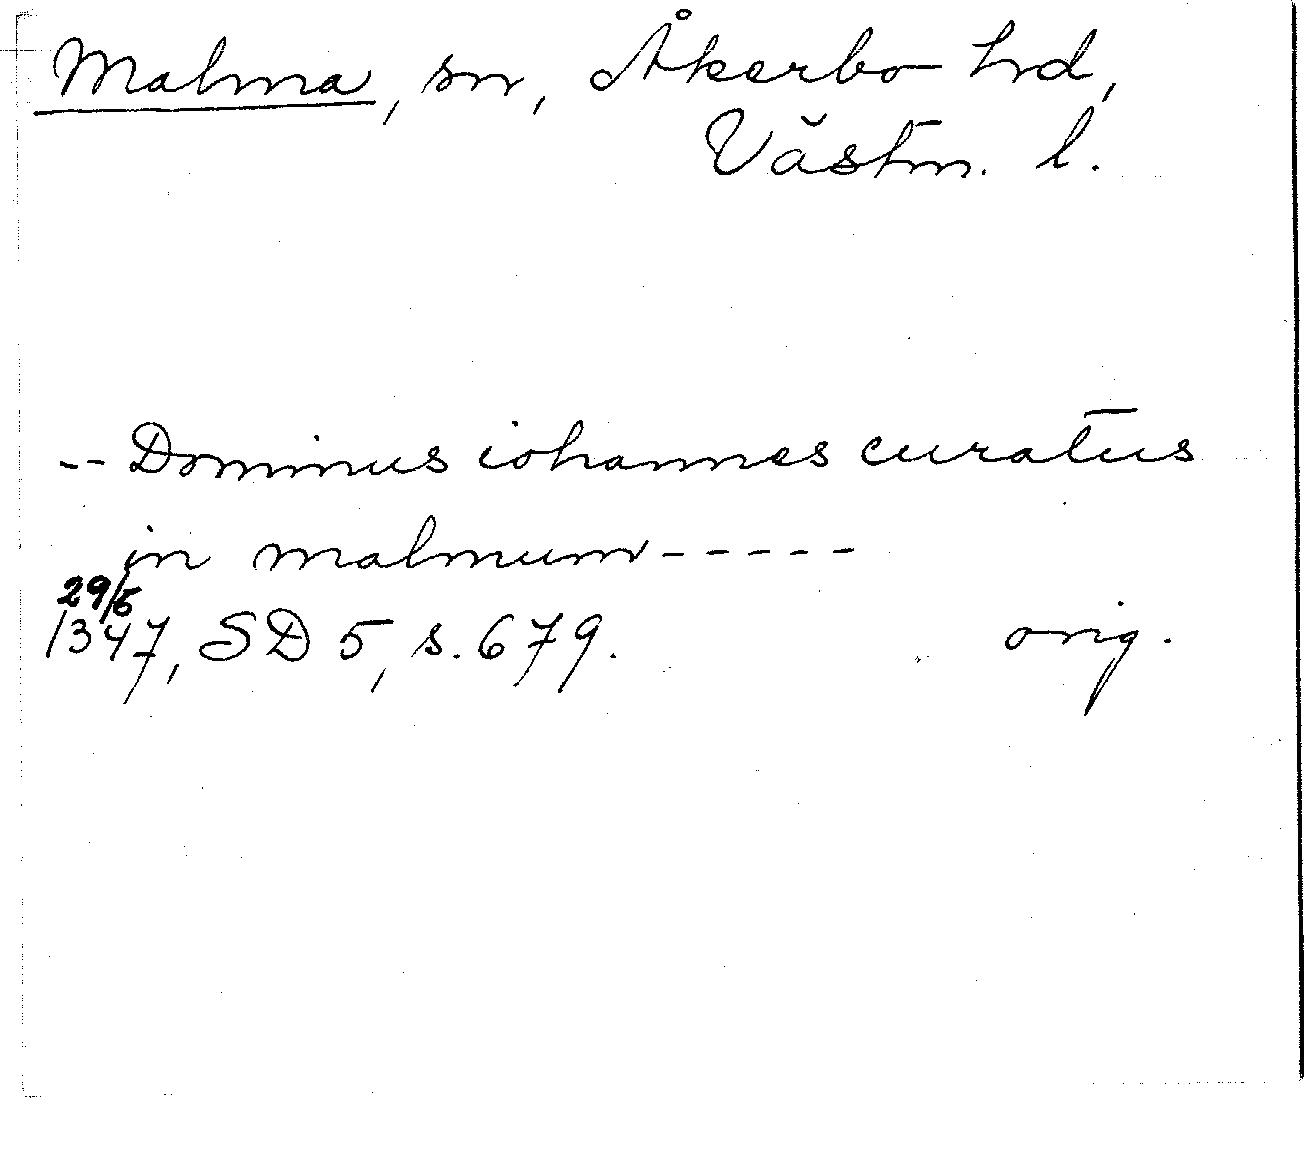 Malma, sn, Åkerbo hd,
Västm. l.
-- Dominus iohannes curatus
in malmum -----
29/5
1347, SD 5, s. 679. orig.